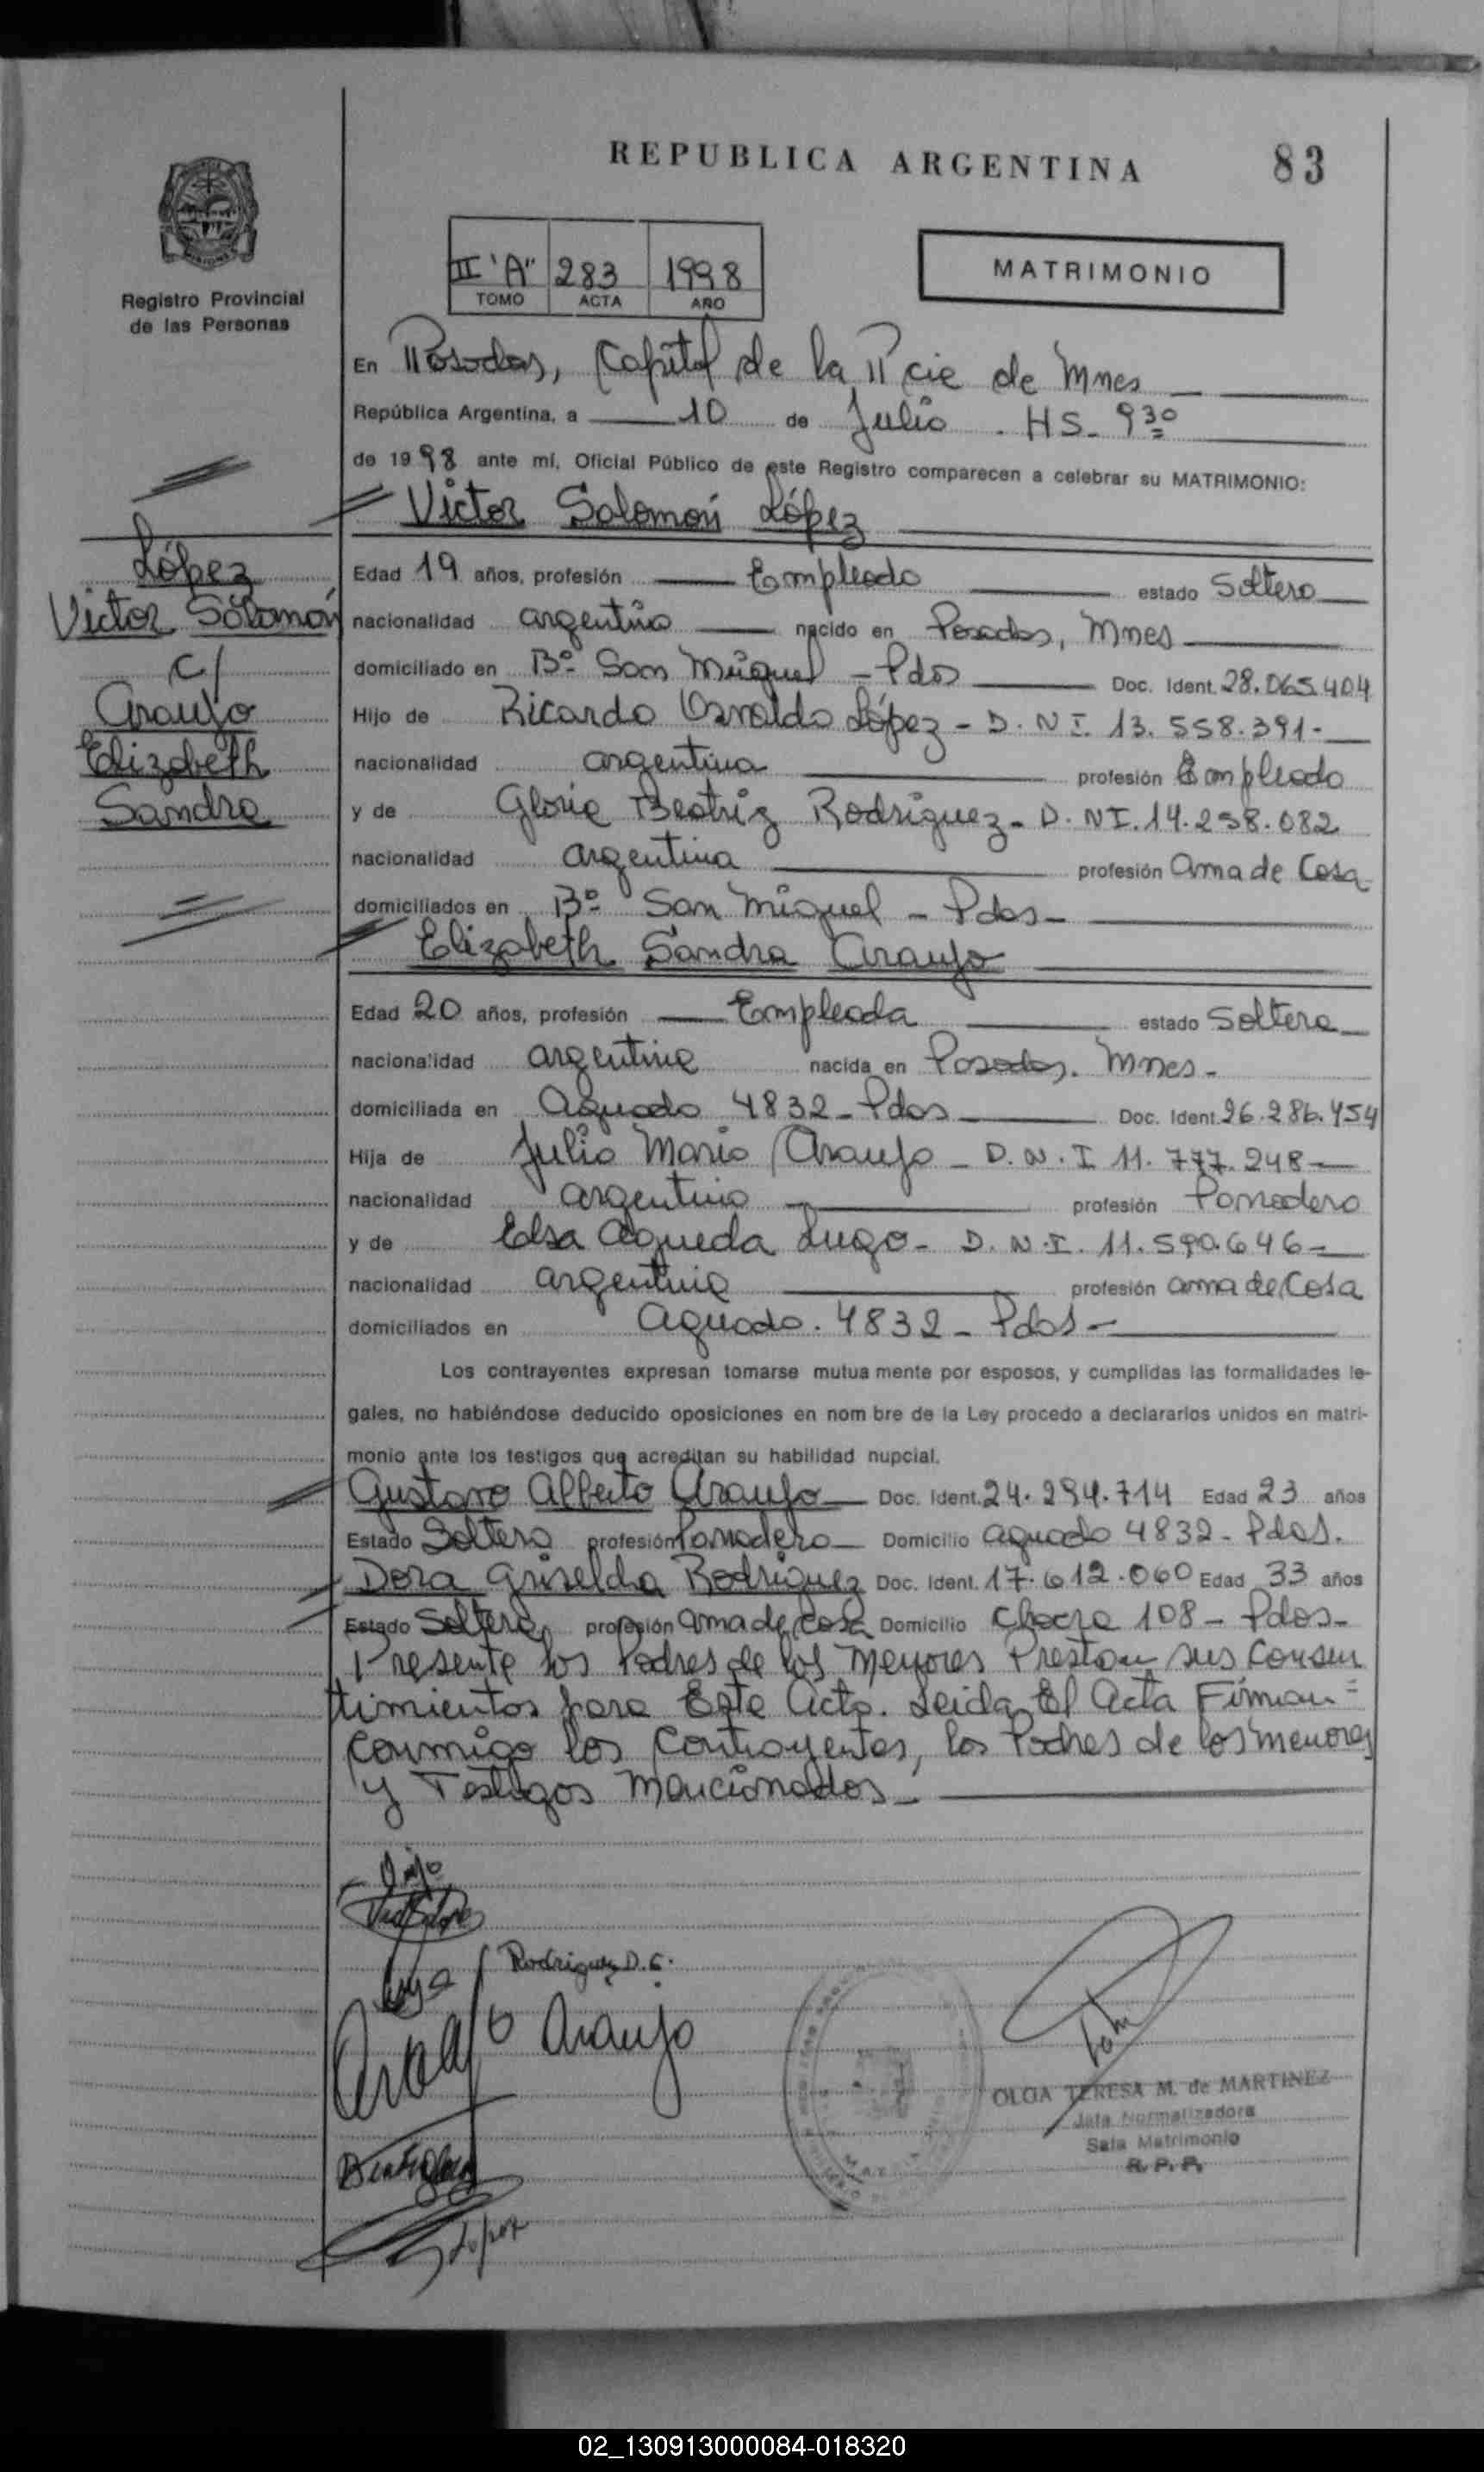 REPUBLICA ARGENTINA
83
Registro Provincial
de las Personas
II "A" 283 1998
TOMO ACTA AÑO
MATRIMONIO
En Posadas, Capital de la Pcie de Mnes
República Argentina, a 10 de Julio . HS. 9 30
de 1998 ante mí, Oficial Público de este Registro comparecen a celebrar su MATRIMONIO:
Victor Salomón López
López
Victor Salomón
c/
Araujo
Elizabeth
Sandra
Edad 19 años, profesión Empleado estado Soltero
nacionalidad argentino nacido en Posadas, Mnes
domiciliado en Bº San Miguel - Pdas Doc. Ident. 28.065.404
Hijo de Ricardo Osvaldo López - D.N.I. 13.558.391-
nacionalidad argentina profesión Empleado
y de Gloria Beatriz Rodriguez - D.NI. 14.258.082
nacionalidad argentina profesión ama de Casa
domiciliados en Bº San Miguel - Pdas-
Elizabeth Sandra Araujo
Edad 20 años, profesión Empleada estado Soltera
nacionalidad argentina nacida en Posadas. Mnes-
domiciliada en Aguado 4832 - Pdas Doc. Ident. 26.286.454
Hija de Julio Mario Araujo - D.N.I 11.777.248-
nacionalidad argentino profesión Panadero
y de Elsa Agueda Lugo - D.N.I. 11.590.646-
nacionalidad argentina profesión ama de Casa
domiciliados en Aguado. 4832 - Pdas-
Los contrayentes expresan tomarse mutua mente por esposos, y cumplidas las formalidades le-
gales, no habiéndose deducido oposiciones en nom bre de la Ley procedo a declararlos unidos en matri-
monio ante los testigos que acreditan su habilidad nupcial.
Gustavo Alberto Araujo Doc. Ident. 24.294.714 Edad 23 años
Estado Soltero profesión Panadero Domicilio Aguado 4832 - Pdas.
Dora Griselda Rodriguez Doc. Ident. 17.612.060 Edad 33 años
Estado Soltera, profesión ama de casa Domicilio Chacra 108 - Pdas-
Presente los Padres de los Menores Prestan sus Consen
timientos para Este Acto. Leida El Acta Firman =
conmigo los Contrayentes, los Padres de los menores
y Testigos mencionados-
Rodriguez D.G.
Araujo
López
OLGA TERESA M. de MARTINEZ
Jefa Normalizadora
Sala Matrimonio
R. P. P.
02_130913000084-018320